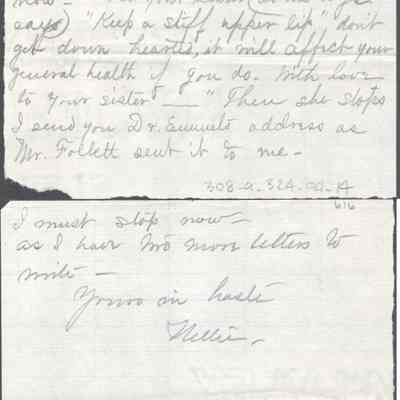 says) "Keep a stiff upper lip" don't
get down hearted, it will affect your
general health if you do. With love
to your sister — " Then she stops
I send you Dr. address as
Mr. Follett sent it to me -
308-9-324.00-A
6/6
I must stop now -
as I have two more letters to
write -
Yours in haste
Nellie.